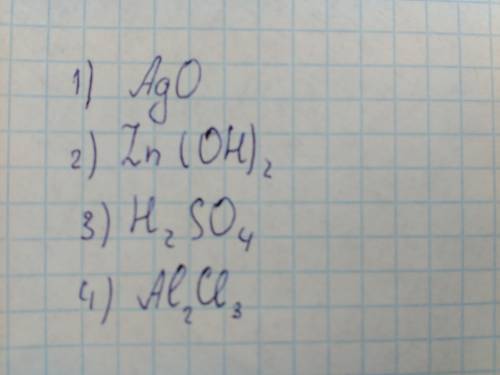 1) AgO
2) Zn(OH)₂
3) H₂SO₄
4) Al₂Cl₃